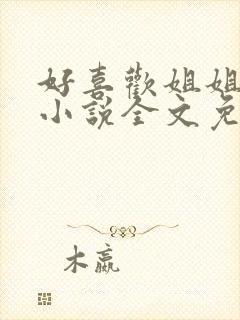 好喜歡姐姐
小說全文免
木嬴